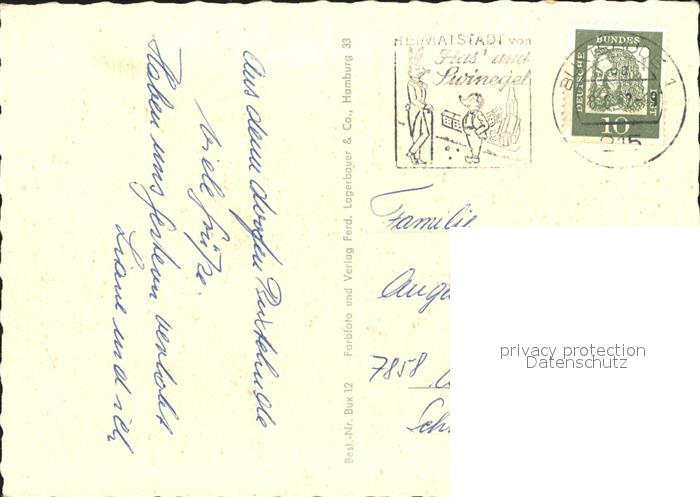 Aus dem dorfen Buxtehude
viele Grüße.
Haben uns gestern verlobt
Liane und ich
Best.-Nr. Bux 12 Farbfoto und Verlag Ferd. Lagerbauer & Co., Hamburg 33
HEIMATSTADT von
Has' und
Swinegel
DEUTSCHE BUNDESPOST
10
Familie
7858
privacy protection
Datenschutz